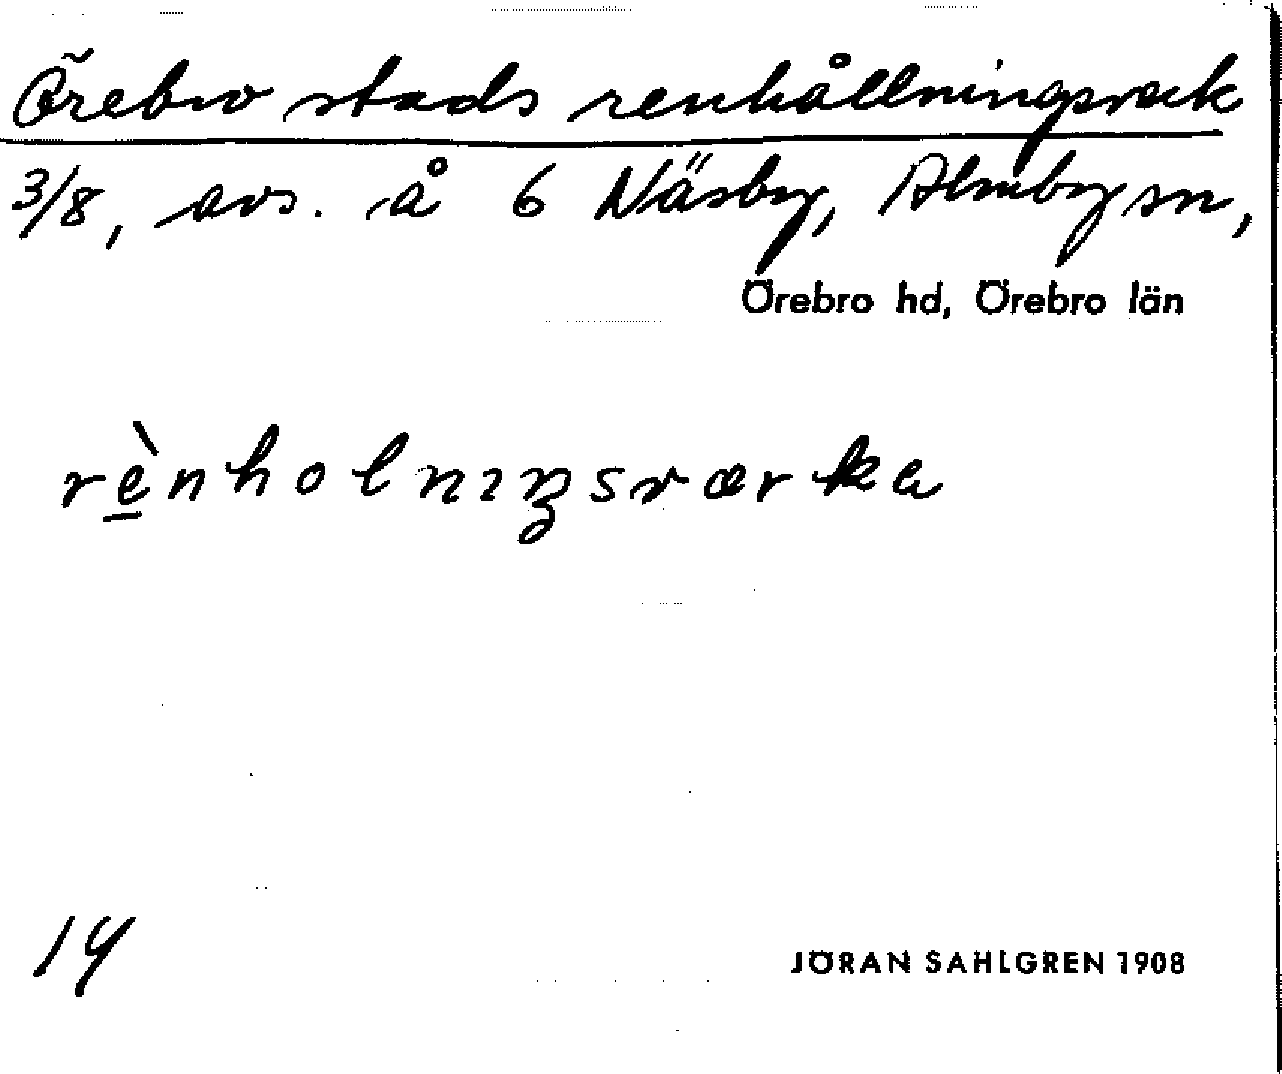 Örebro stads renhållningsverk
3/8, avs. å 6 Näsby, Almby sn,
Örebro hd, Örebro län
rènholnıŋsværka
14
JÖRAN SAHLGREN 1908